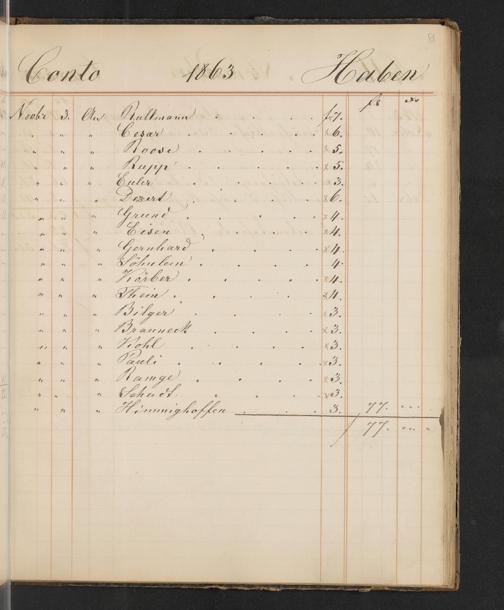 Conto 1863 Haben
Novbr 3. An Rullmann f 7.
" " " Cesar " 6.
" " " Roose " 5.
" " " Rupp " 5.
" " " Euler " 3.
" " " " 6.
" " " Grund " 4.
" " " Eisen " 4.
" " " Gernhard " 4.
" " " Söhnlein 4.
" " " Körber " 4.
" " " Thein " 4.
" " " Bilger " 3.
" " " Branneck " 3.
" " " Kohl " 3.
" " " Pauli " 3.
" " " Ramge " 3.
" " " Schudt " 3.
" " " Himmighoffen 3. 77. "
77. "